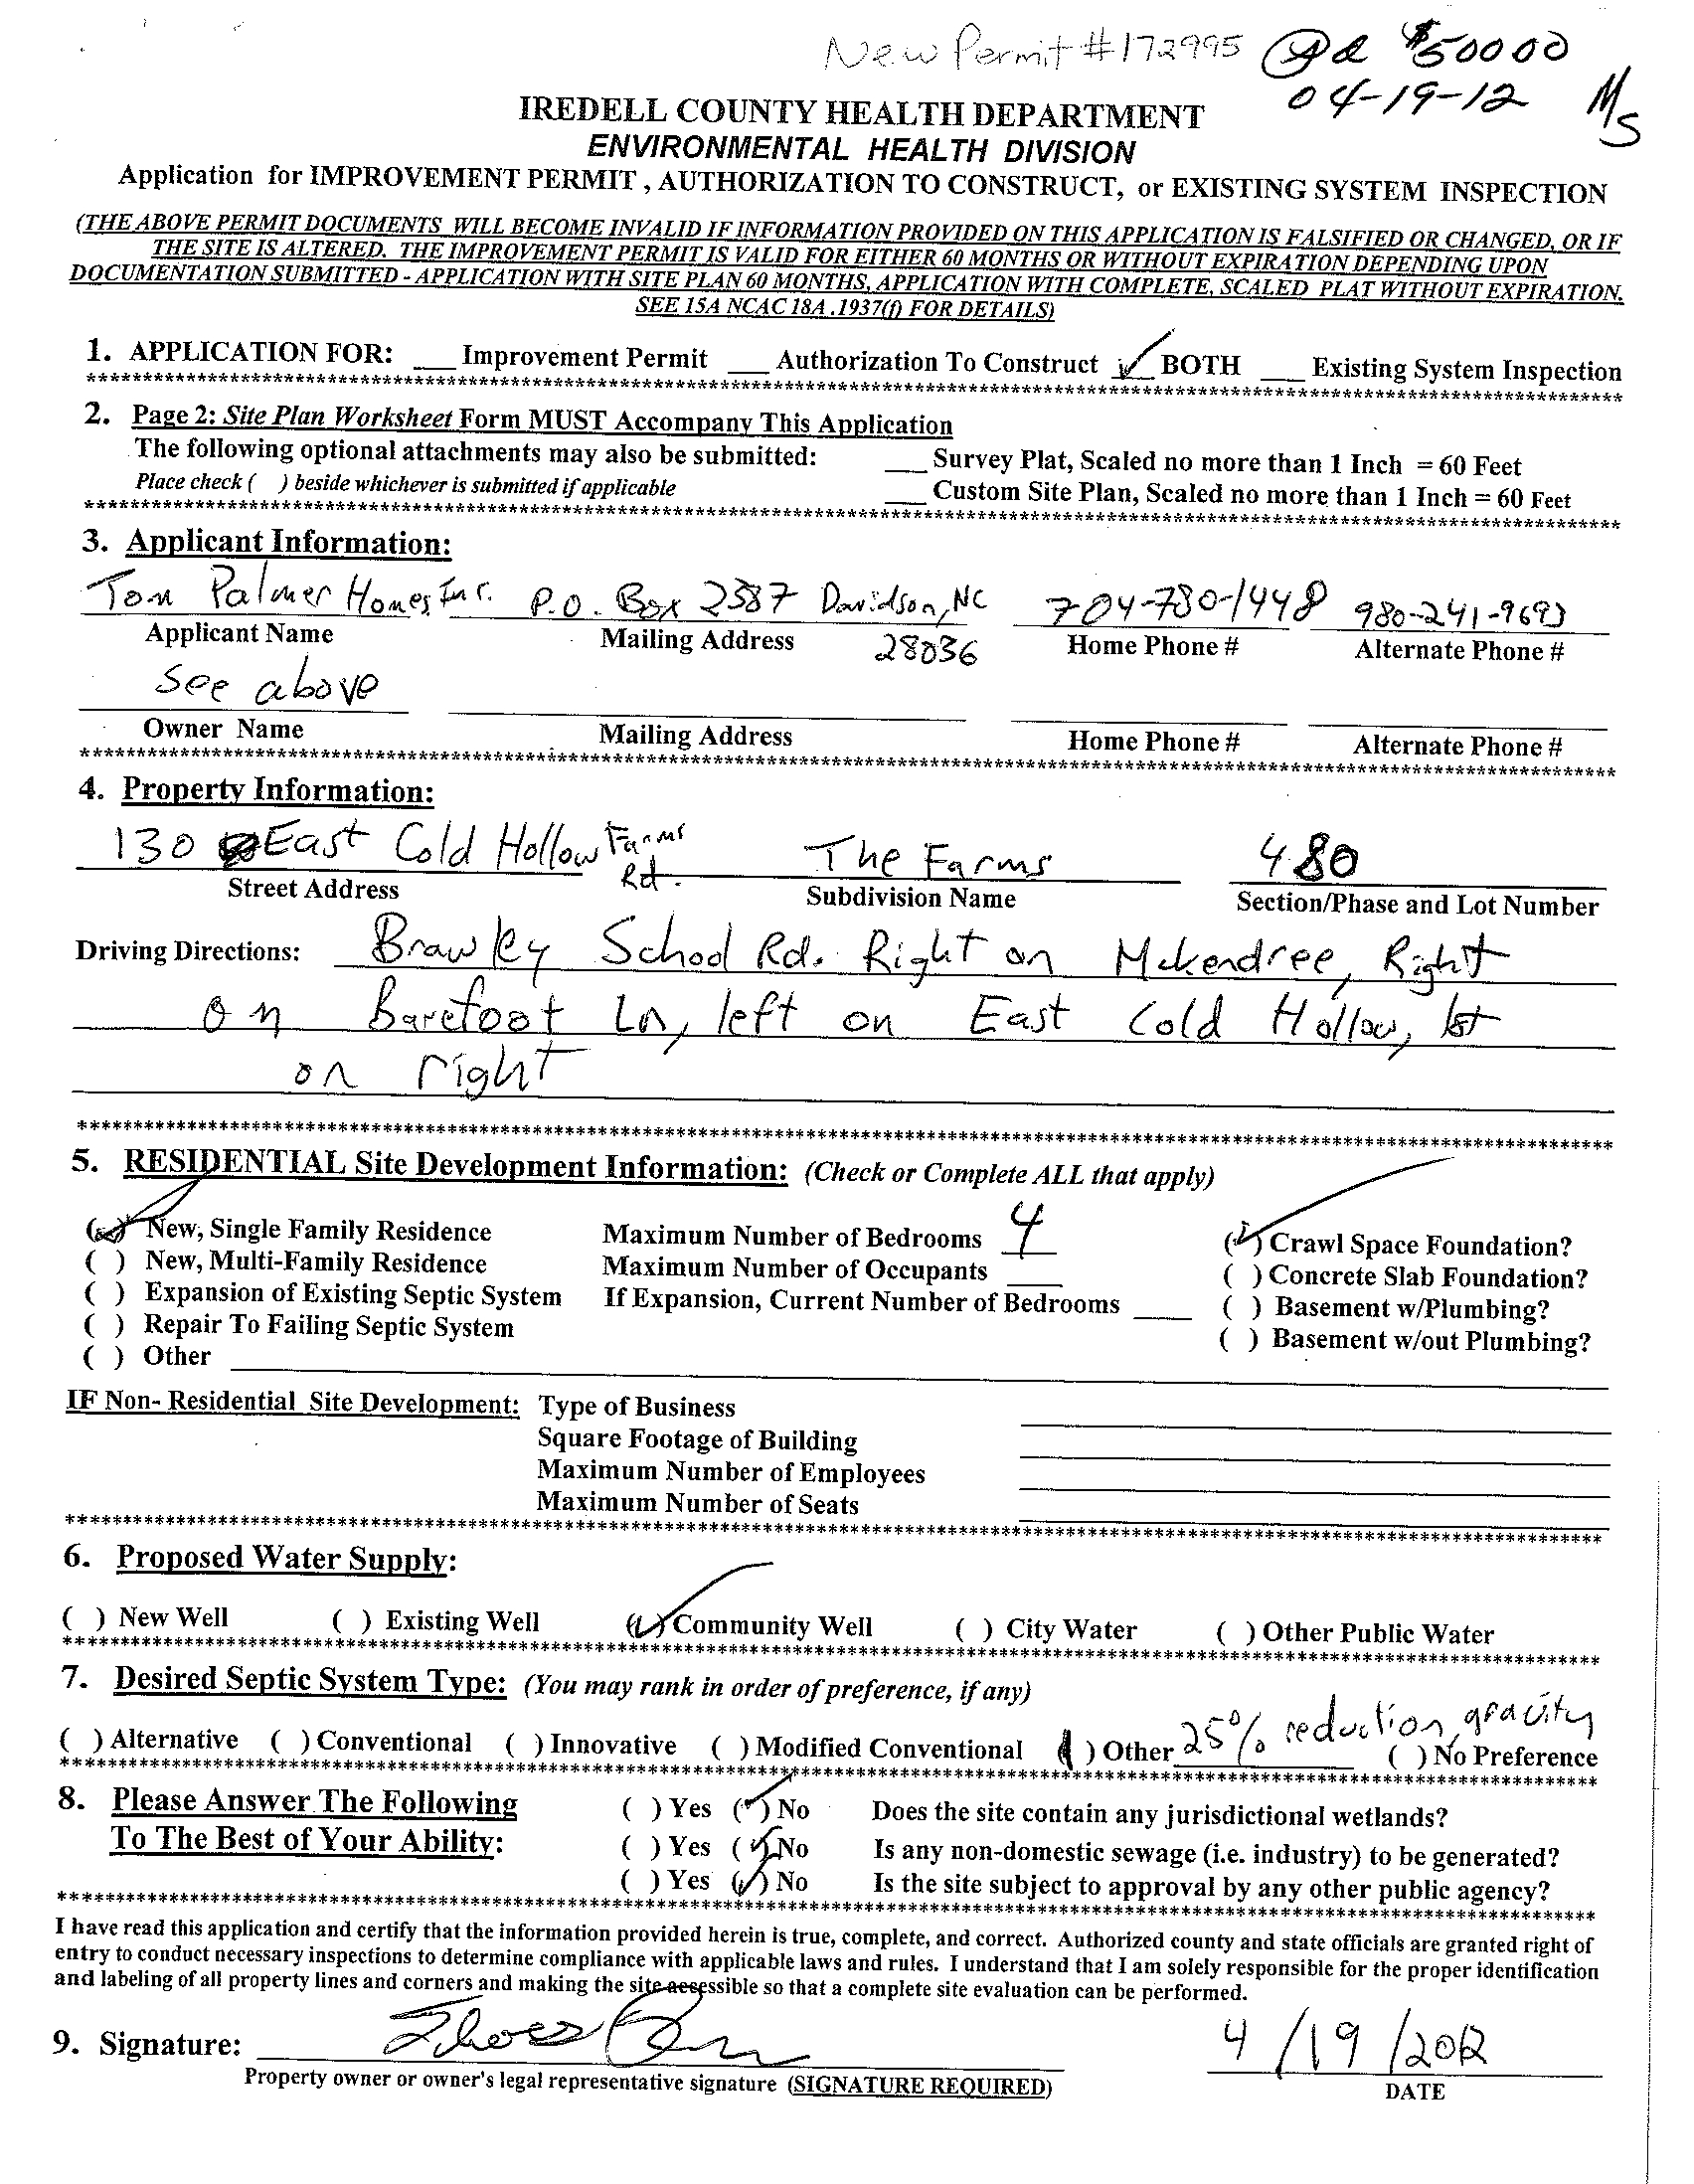 New Permit #172995 Pd $50000
04-19-12 MS
IREDELL COUNTY HEALTH DEPARTMENT
ENVIRONMENTAL HEALTH DIVISION
Application for IMPROVEMENT PERMIT , AUTHORIZATION TO CONSTRUCT, or EXISTING SYSTEM INSPECTION
(THE ABOVE PERMIT DOCUMENTS WILL BECOME INVALID IF INFORMATION PROVIDED ON THIS APPLICATION IS FALSIFIED OR CHANGED, OR IF
THE SITE IS ALTERED. THE IMPROVEMENT PERMIT IS VALID FOR EITHER 60 MONTHS OR WITHOUT EXPIRATION DEPENDING UPON
DOCUMENTATION SUBMITTED - APPLICATION WITH SITE PLAN 60 MONTHS, APPLICATION WITH COMPLETE, SCALED PLAT WITHOUT EXPIRATION.
SEE 15A NCAC 18A .1937(f) FOR DETAILS)
1. APPLICATION FOR: ___ Improvement Permit ___ Authorization To Construct ✓ BOTH ___ Existing System Inspection
2. Page 2: Site Plan Worksheet Form MUST Accompany This Application
The following optional attachments may also be submitted: ___ Survey Plat, Scaled no more than 1 Inch = 60 Feet
Place check ( ) beside whichever is submitted if applicable ___ Custom Site Plan, Scaled no more than 1 Inch = 60 Feet
3. Applicant Information:
Tom Palmer Homes, Inc. P.O. Box 2587 Davidson, NC 704-780-1448 980-241-9693
Applicant Name Mailing Address 28036 Home Phone # Alternate Phone #
See above
Owner Name Mailing Address Home Phone # Alternate Phone #
4. Property Information:
130 East Cold Hollow Farms Rd. The Farms 480
Street Address Subdivision Name Section/Phase and Lot Number
Driving Directions: Brawley School Rd. Right on Mckendree, Right
on Barefoot Ln, left on East Cold Hollow, lot
on right
5. RESIDENTIAL Site Development Information: (Check or Complete ALL that apply)
(✓) New, Single Family Residence Maximum Number of Bedrooms 4 (✓) Crawl Space Foundation?
( ) New, Multi-Family Residence Maximum Number of Occupants ___ ( ) Concrete Slab Foundation?
( ) Expansion of Existing Septic System If Expansion, Current Number of Bedrooms ___ ( ) Basement w/Plumbing?
( ) Repair To Failing Septic System ( ) Basement w/out Plumbing?
( ) Other
IF Non- Residential Site Development: Type of Business
Square Footage of Building
Maximum Number of Employees
Maximum Number of Seats
6. Proposed Water Supply:
( ) New Well ( ) Existing Well (✓) Community Well ( ) City Water ( ) Other Public Water
7. Desired Septic System Type: (You may rank in order of preference, if any)
( ) Alternative ( ) Conventional ( ) Innovative ( ) Modified Conventional ( ) Other 25% reduction gravity ( ) No Preference
8. Please Answer The Following ( ) Yes (✓) No Does the site contain any jurisdictional wetlands?
To The Best of Your Ability: ( ) Yes (✓) No Is any non-domestic sewage (i.e. industry) to be generated?
( ) Yes (✓) No Is the site subject to approval by any other public agency?
I have read this application and certify that the information provided herein is true, complete, and correct. Authorized county and state officials are granted right of
entry to conduct necessary inspections to determine compliance with applicable laws and rules. I understand that I am solely responsible for the proper identification
and labeling of all property lines and corners and making the site accessible so that a complete site evaluation can be performed.
9. Signature: 4/19/2012
Property owner or owner's legal representative signature (SIGNATURE REQUIRED) DATE